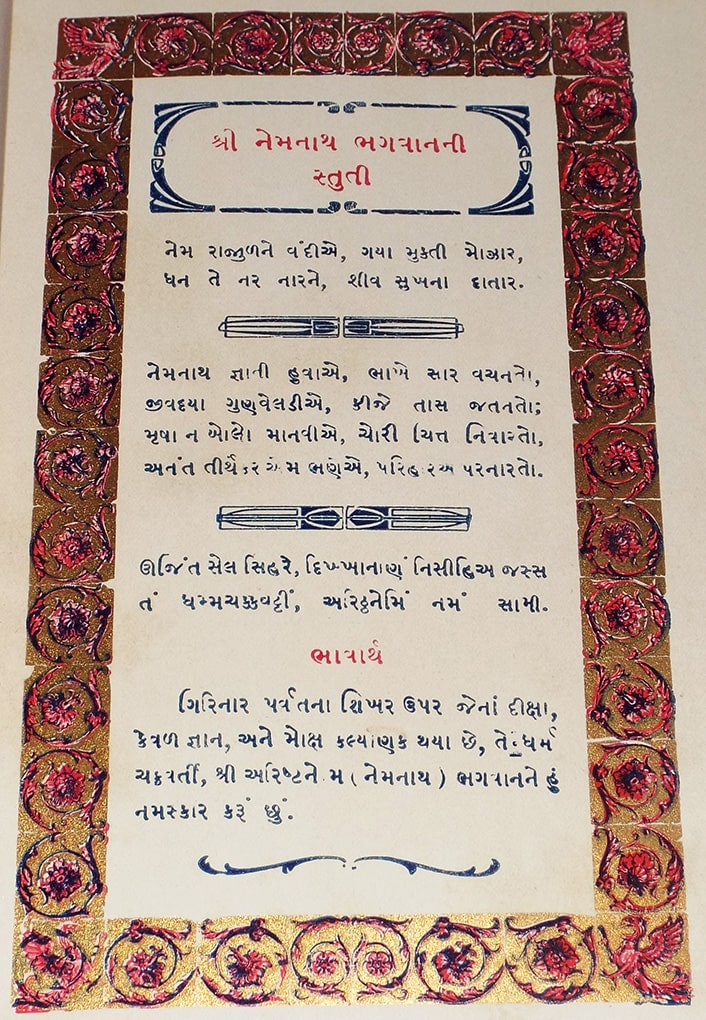 શ્રી નેમનાથ ભગવાનની
સ્તુતી
નેમ રાજુળને વંદીએ, ગયા મુક્તી મોઝાર,
ધન તે નર નારને, શીવ સુખના દાતાર.
નેમનાથ જ્ઞાની હુવાએ, ભાખે સાર વચનતો,
જીવદયા ગુણવેલડીએ, કીજે તાસ જતનતો;
મૃષા ન બોલો માનવીએ, ચોરી ચિત્ત નિવારતો,
અનંત તીર્થંકર એમ ભણેએ, પરિહરએ પરનારતો.
ઊજિંત સેલ સિહરે, દિખ્ખાનાણં નિસીહિઅ જસ્સ
તં ધમ્મચક્કવટ્ટીં, અરિઠ્ઠનેમિં નમં સામી.
ભાવાર્થ
ગિરિનાર પર્વતના શિખર ઉપર જેનાં દીક્ષા,
કેવળ જ્ઞાન, અને મોક્ષ કલ્યાણક થયા છે, તે ધર્મ
ચક્રવર્તી, શ્રી અરિષ્ટનેમ ( નેમનાથ ) ભગવાનને હું
નમસ્કાર કરૂં છું.